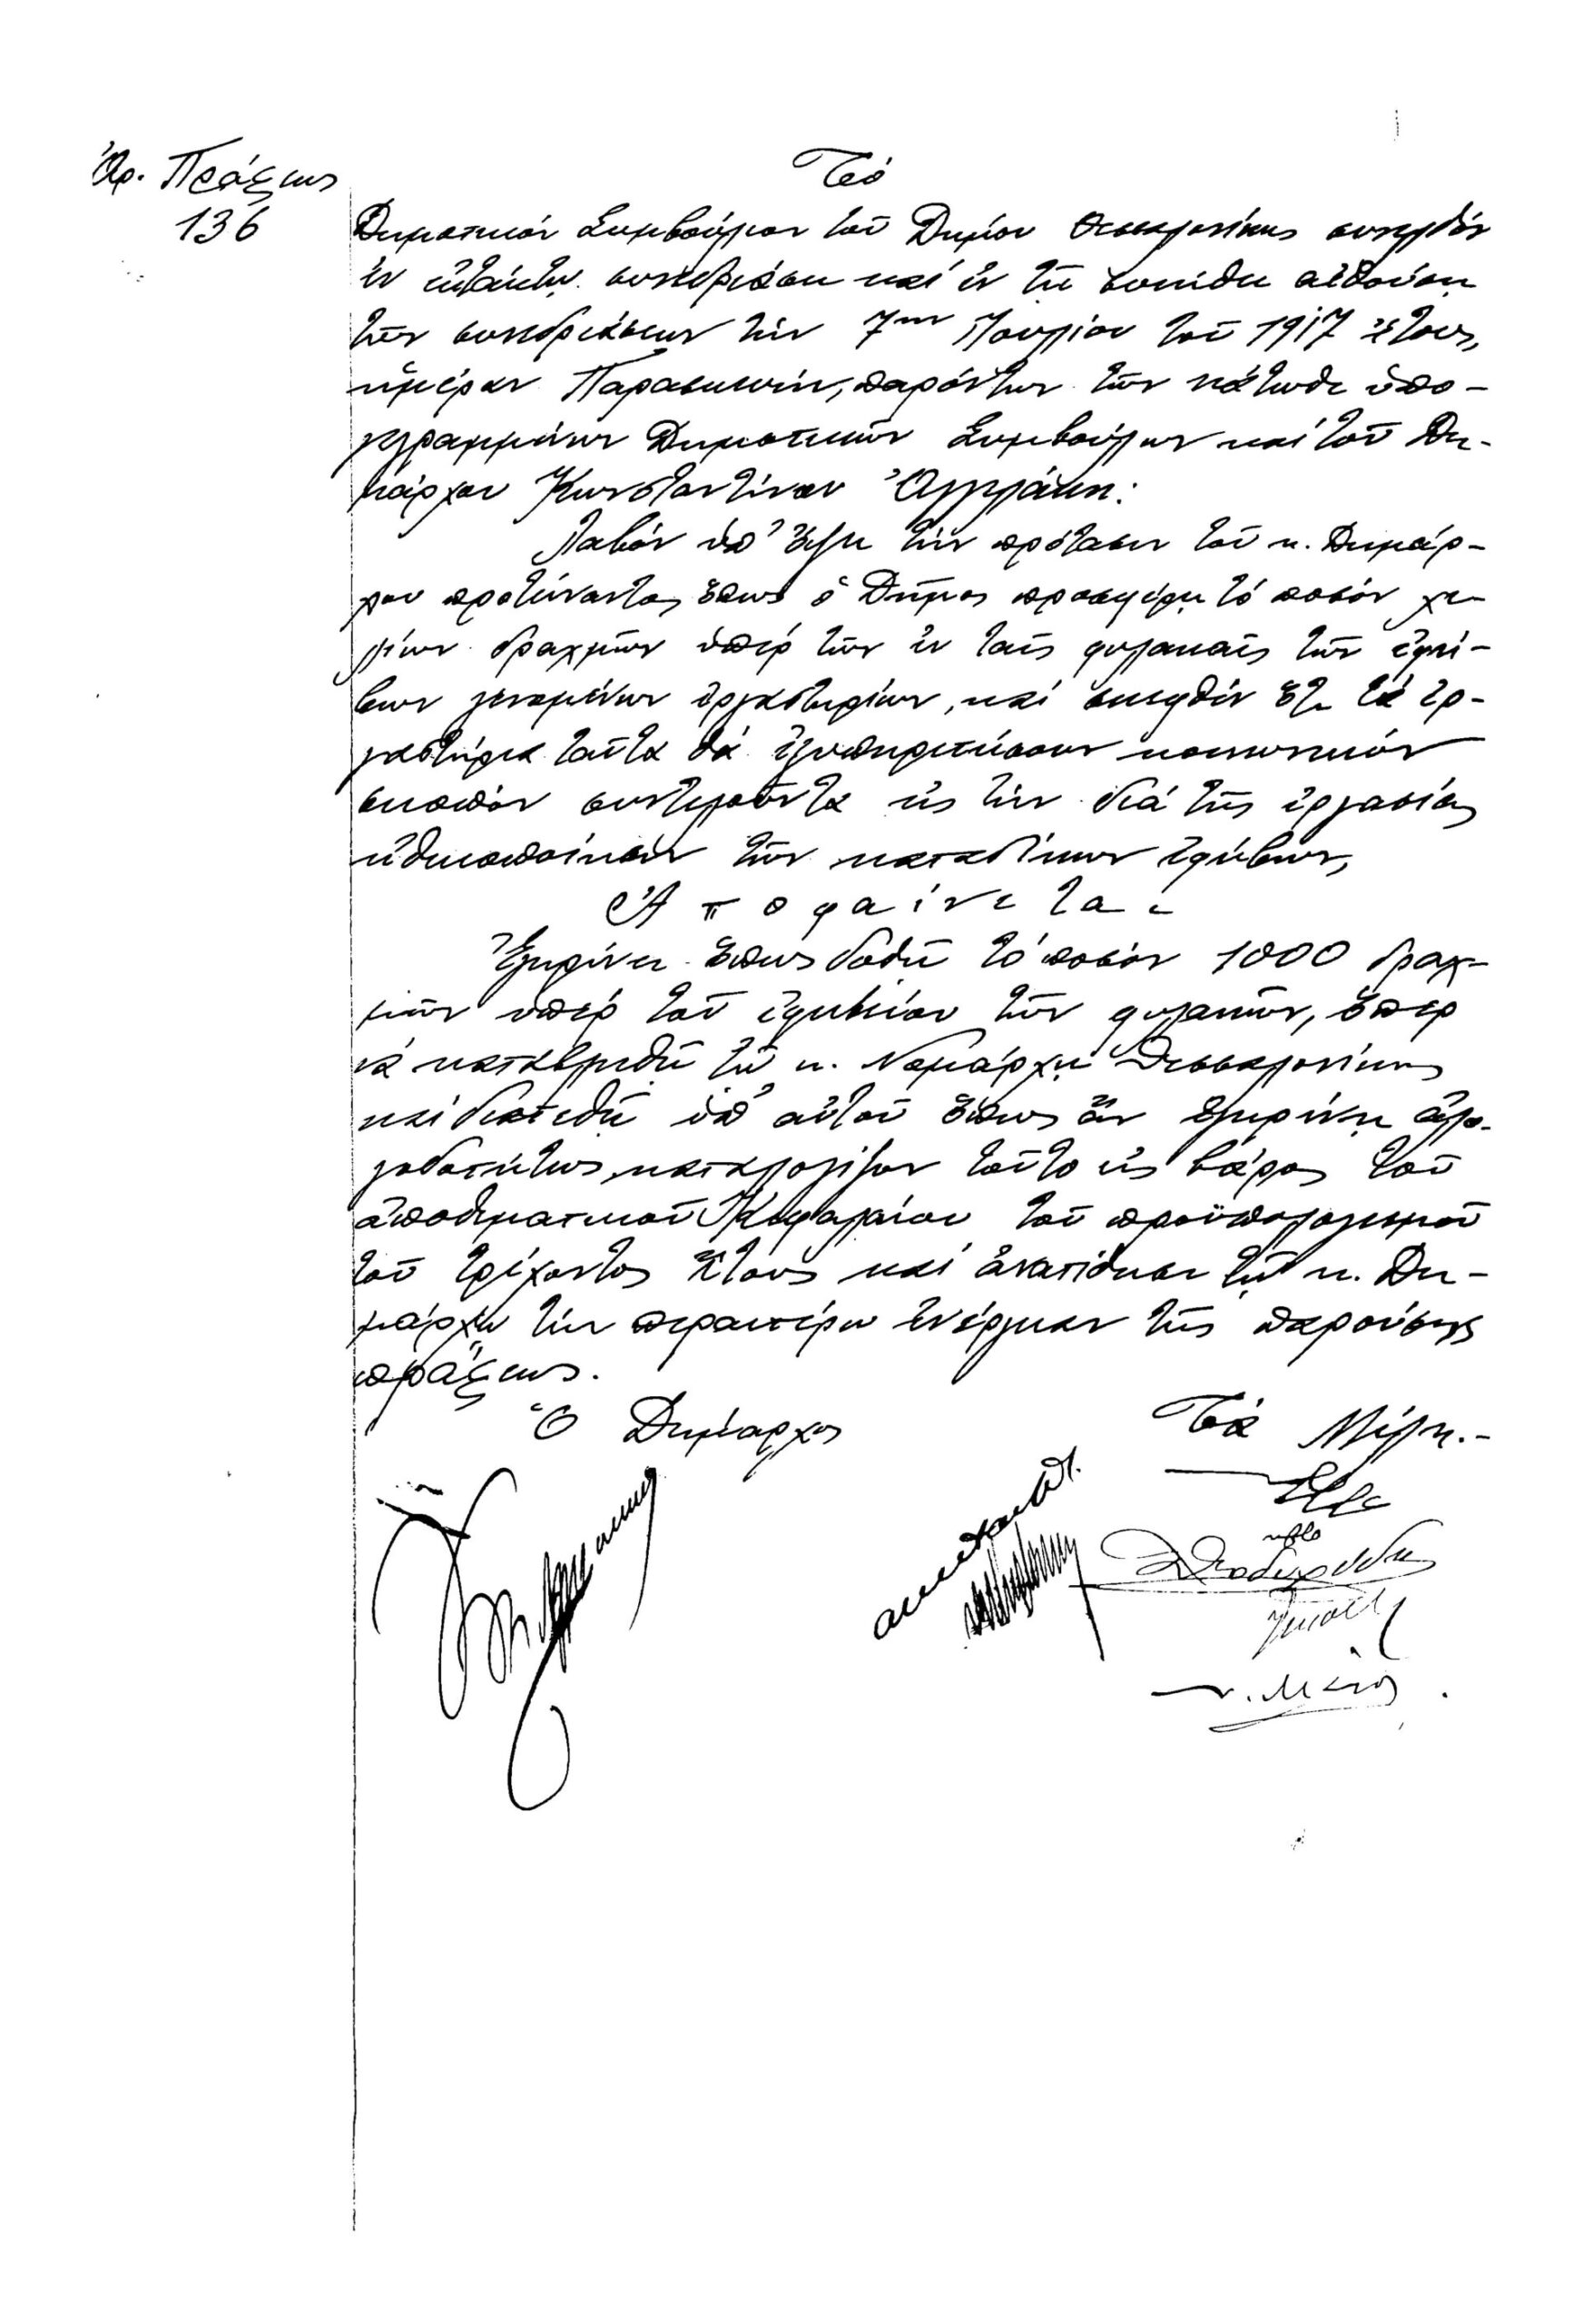 Ἀρ. Πράξεως
136
Τὸ
Δημοτικὸν Συμβούλιον τοῦ Δήμου Θεσσαλονίκης συνελθὸν
ἐν ἐκτάκτῳ συνεδριάσει καὶ ἐν τῇ συνήθει αἰθούσῃ
τῶν συνεδριάσεων τὴν 7ην Ἰουλίου τοῦ 1917 ἔτους,
ἡμέραν Παρασκευήν, παρόντων τῶν κάτωθι ὑπο-
γεγραμμένων Δημοτικῶν Συμβούλων καὶ τοῦ Δη-
μάρχου Κωνσταντίνου Ἀγγελάκη:
Λαβὸν ὑπ' ὄψει τὴν πρότασιν τοῦ κ. Δημάρ-
χου προτείναντος ὅπως ὁ Δῆμος προσφέρῃ τὸ ποσὸν χι-
λίων δραχμῶν ὑπὲρ τῶν ἐν ταῖς φυλακαῖς τῶν ἐφή-
βων γενομένων ἐργαστηρίων, καὶ σκεφθὲν ὅτι τὰ ἐρ-
γαστήρια ταῦτα θὰ ἐξυπηρετήσουν κοινωνικὸν
σκοπὸν συντελοῦντα εἰς τὴν διὰ τῆς ἐργασίας
ἠθικοποίησιν τῶν καταδίκων ἐφήβων,
Ἀποφαίνεται
Ἐγκρίνει ὅπως δοθῇ τὸ ποσὸν 1000 δραχ-
μῶν ὑπὲρ τοῦ ἐφηβείου τῶν φυλακῶν, ὅπερ
νὰ καταβληθῇ τῷ κ. Νομάρχῃ Θεσσαλονίκης
καὶ διατεθῇ ὑπ' αὐτοῦ ὅπως ἂν ἐγκρίνῃ
καταλογίζον τοῦτο εἰς βάρος τοῦ
ἀποθεματικοῦ Κεφαλαίου τοῦ προϋπολογισμοῦ
τοῦ τρέχοντος ἔτους καὶ ἀνατίθησι τῷ κ. Δη-
μάρχῳ τὴν περαιτέρω ἐνέργειαν τῆς παρούσης
πράξεως.
Ὁ Δήμαρχος
Τὰ Μέλη.-